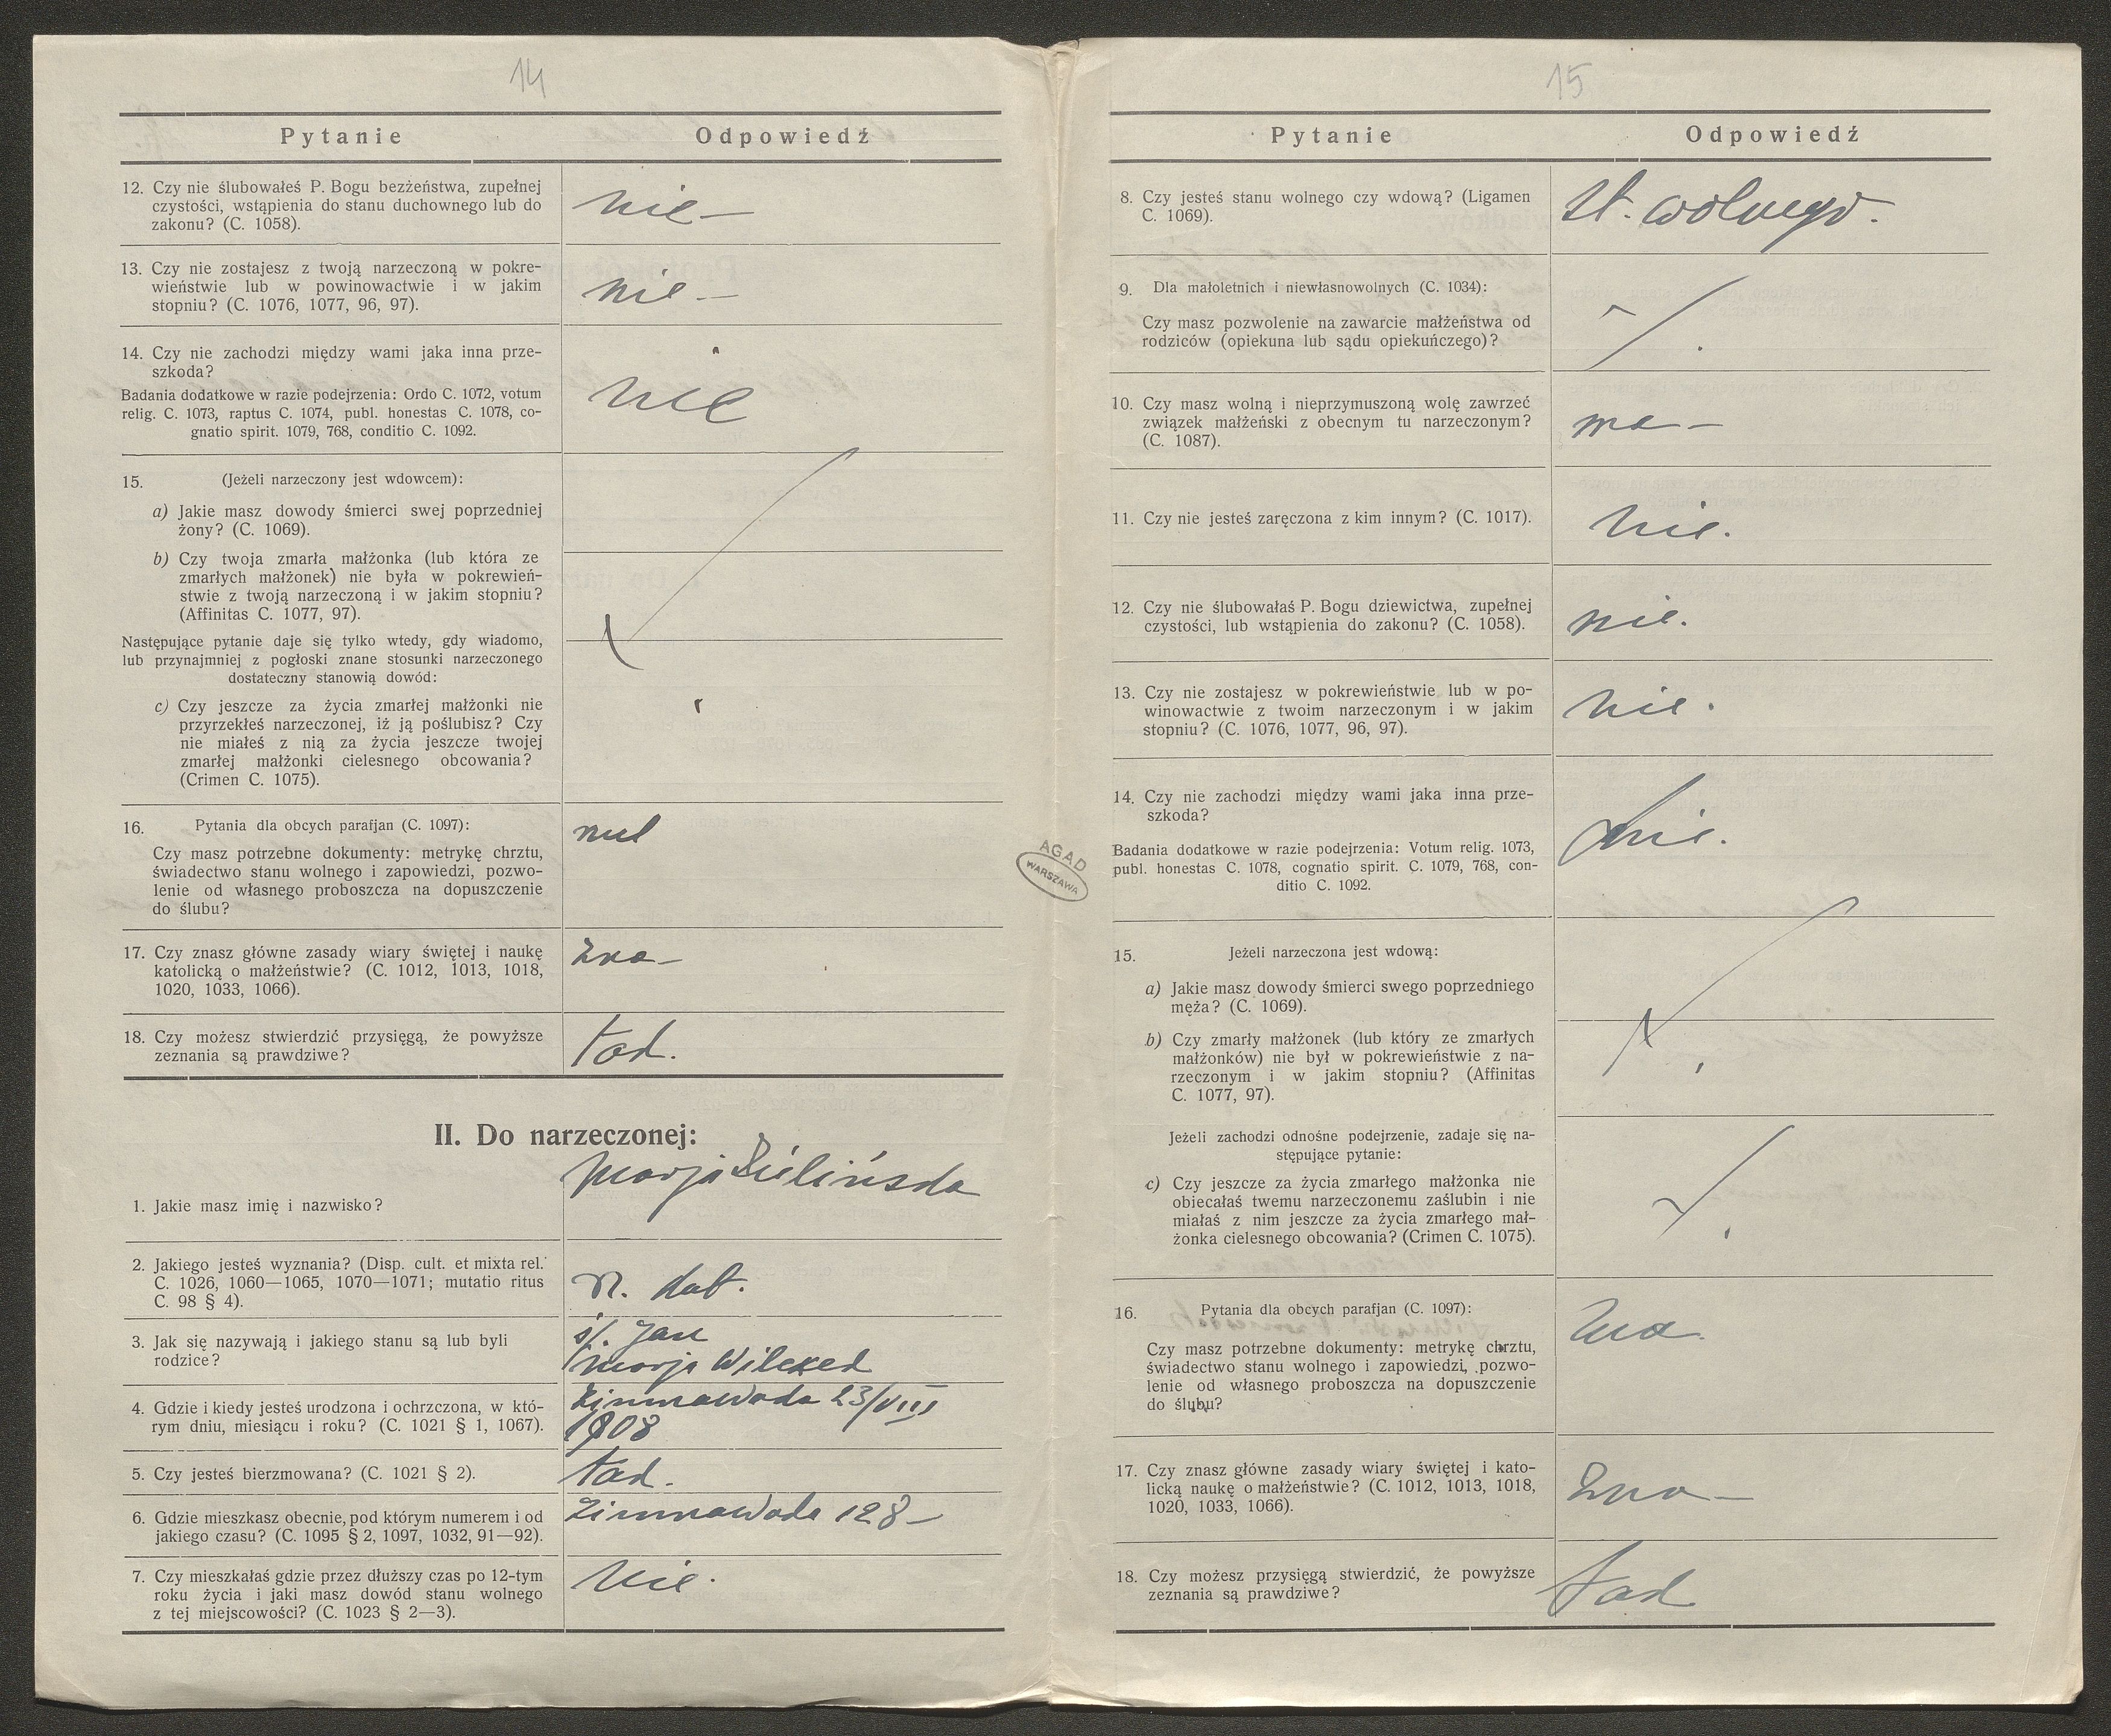 14
Pytanie
Odpowiedź
12. Czy nie ślubowałeś P. Bogu bezżeństwa, zupełnej
czystości, wstąpienia do stanu duchownego lub do
zakonu? (C. 1058).
nie —
13. Czy nie zostajesz z twoją narzeczoną w pokre-
wieństwie lub w powinowactwie i w jakim
stopniu? (C. 1076, 1077, 96, 97).
nie —
14. Czy nie zachodzi między wami jaka inna prze-
szkoda?
Badania dodatkowe w razie podejrzenia: Ordo C. 1072, votum
relig. C. 1073, raptus C. 1074, publ. honestas C. 1078, co-
gnatio spirit. 1079, 768, conditio C. 1092.
nie
15. (Jeżeli narzeczony jest wdowcem):
a) Jakie masz dowody śmierci swej poprzedniej
żony? (C. 1069).
b) Czy twoja zmarła małżonka (lub która ze
zmarłych małżonek) nie była w pokrewień-
stwie z twoją narzeczoną i w jakim stopniu?
(Affinitas C. 1077, 97).
Następujące pytanie daje się tylko wtedy, gdy wiadomo,
lub przynajmniej z pogłoski znane stosunki narzeczonego
dostateczny stanowią dowód:
c) Czy jeszcze za życia zmarłej małżonki nie
przyrzekłeś narzeczonej, iż ją poślubisz? Czy
nie miałeś z nią za życia jeszcze twojej
zmarłej małżonki cielesnego obcowania?
(Crimen C. 1075).
16. Pytania dla obcych parafjan (C. 1097):
Czy masz potrzebne dokumenty: metrykę chrztu,
świadectwo stanu wolnego i zapowiedzi, pozwo-
lenie od własnego proboszcza na dopuszczenie
do ślubu?
17. Czy znasz główne zasady wiary świętej i naukę
katolicką o małżeństwie? (C. 1012, 1013, 1018,
1020, 1033, 1066).
zna —
18. Czy możesz stwierdzić przysięgą, że powyższe
zeznania są prawdziwe?
tak.
II. Do narzeczonej:
1. Jakie masz imię i nazwisko?
Marja Zielińska
2. Jakiego jesteś wyznania? (Disp. cult. et mixta rel.
C. 1026, 1060—1065, 1070—1071; mutatio ritus
C. 98 § 4).
r. kat.
3. Jak się nazywają i jakiego stanu są lub byli
rodzice?
śp. Jan
Marja Wilczek
4. Gdzie i kiedy jesteś urodzona i ochrzczona, w któ-
rym dniu, miesiącu i roku? (C. 1021 § 1, 1067).
Zimnawoda 23/VIII
1908
5. Czy jesteś bierzmowana? (C. 1021 § 2).
tak.
6. Gdzie mieszkasz obecnie, pod którym numerem i od
jakiego czasu? (C. 1095 § 2, 1097, 1032, 91—92).
Zimnawoda 128 —
7. Czy mieszkałaś gdzie przez dłuższy czas po 12-tym
roku życia i jaki masz dowód stanu wolnego
z tej miejscowości? (C. 1023 § 2—3).
nie.
AGAD
WARSZAWA
15
Pytanie
Odpowiedź
8. Czy jesteś stanu wolnego czy wdową? (Ligamen
C. 1069).
st. wolnego.
9. Dla małoletnich i niewłasnowolnych (C. 1034):
Czy masz pozwolenie na zawarcie małżeństwa od
rodziców (opiekuna lub sądu opiekuńczego)?
10. Czy masz wolną i nieprzymuszoną wolę zawrzeć
związek małżeński z obecnym tu narzeczonym?
(C. 1087).
ma —
11. Czy nie jesteś zaręczona z kim innym? (C. 1017).
nie.
12. Czy nie ślubowałaś P. Bogu dziewictwa, zupełnej
czystości, lub wstąpienia do zakonu? (C. 1058).
nie.
13. Czy nie zostajesz w pokrewieństwie lub w po-
winowactwie z twoim narzeczonym i w jakim
stopniu? (C. 1076, 1077, 96, 97).
nie.
14. Czy nie zachodzi między wami jaka inna prze-
szkoda?
Badania dodatkowe w razie podejrzenia: Votum relig. 1073,
publ. honestas C. 1078, cognatio spirit. C. 1079, 768, con-
ditio C. 1092.
nie.
15. Jeżeli narzeczona jest wdową:
a) Jakie masz dowody śmierci swego poprzedniego
męża? (C. 1069).
b) Czy zmarły małżonek (lub który ze zmarłych
małżonków) nie był w pokrewieństwie z na-
rzeczonym i w jakim stopniu? (Affinitas
C. 1077, 97).
Jeżeli zachodzi odnośne podejrzenie, zadaje się na-
stępujące pytanie:
c) Czy jeszcze za życia zmarłego małżonka nie
obiecałaś twemu narzeczonemu zaślubin i nie
miałaś z nim jeszcze za życia zmarłego mał-
żonka cielesnego obcowania? (Crimen C. 1075).
16. Pytania dla obcych parafjan (C. 1097):
Czy masz potrzebne dokumenty: metrykę chrztu,
świadectwo stanu wolnego i zapowiedzi, pozwo-
lenie od własnego proboszcza na dopuszczenie
do ślubu?
17. Czy znasz główne zasady wiary świętej i kato-
licką naukę o małżeństwie? (C. 1012, 1013, 1018,
1020, 1033, 1066).
zna —
18. Czy możesz przysięgą stwierdzić, że powyższe
zeznania są prawdziwe?
tak